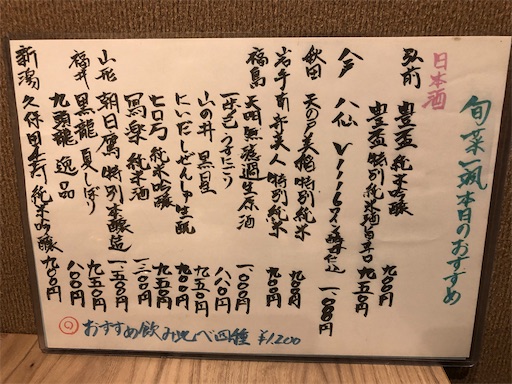 旬菜一颯本日のおすすめ
日本酒
弘前 豊盃 純米吟醸 九〇〇円
豊盃 特別純米酒 旨辛口 九五〇円
八戸 八仙 仕込 一、〇〇〇円
秋田 天の戸 美稲 特別純米 九〇〇円
岩手 南部美人 特別純米 九〇〇円
福島 天明 無濾過生原酒 一、〇〇〇円
一歩己 うすにごり 八〇〇円
山の井 黒 九五〇円
にいだしぜんしゅ 生酛 九〇〇円
ロ万 純米吟醸 九五〇円
寫楽 純米酒 一三〇〇円
山形 朝日鷹 特別本醸造 一五〇〇円
福井 黒龍 夏しぼり 九五〇円
九頭龍 逸品 八〇〇円
新潟 久保田 千寿 純米吟醸 九〇〇円
◎おすすめ飲み比べ四種 ¥1,200